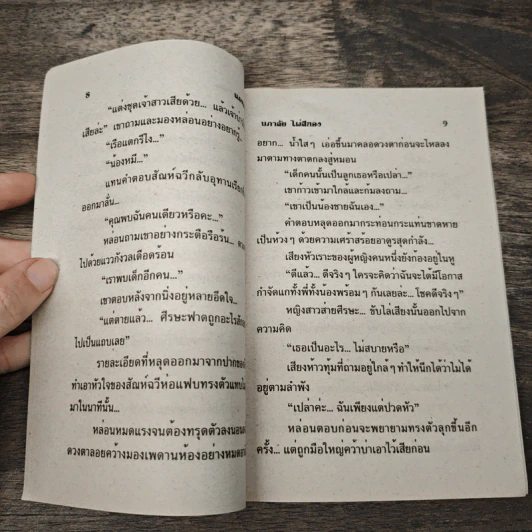 8
“แต่งชุดเจ้าสาวเสียด้วย... แล้วเจ้าบ่าว
เสียล่ะ” เขาถามและมองหล่อนอย่างอยากรู้...
“เรือแตกรึไง...”
“น้องหมี...”
แทนคำตอบสัณห์ฉวีกลับอุทานเรียก
ออกมาลั่น...
“คุณพบฉันคนเดียวหรือคะ...”
หล่อนถามเขาอย่างกระตือรือร้น...
ไปด้วยแววกังวลเดือดร้อน
“เราพบเด็กอีกคน...”
เขาตอบหลังจากนิ่งอยู่หลายอึดใจ...
“แต่ตายแล้ว... ศีรษะฟาดถูกอะไรสัก
ไปเป็นแถบเลย”
รายละเอียดที่หลุดออกมาจากปากของ
ทำเอาหัวใจของสัณห์ฉวีห่อแฟบทรงตัวแทบไม่
มาในนาทีนั้น...
หล่อนหมดแรงจนต้องทรุดตัวลงนอน
ดวงตาลอยคว้างมองเพดานห้องอย่างหมด
นภาลัย ไผ่สีทอง 9
อยาก... น้ำใสๆ เอ่อขึ้นมาคลอดวงตาก่อนจะไหลลง
มาตามทางตาตกลงสู่หมอน
“เด็กคนนั้นเป็นลูกเธอหรือเปล่า...”
เขาก้าวเข้ามาใกล้และก้มลงถาม...
“เขาเป็นน้องชายฉันเอง...”
คำตอบหลุดออกมากระท่อนกระแท่นขาดหาย
เป็นห้วงๆ ด้วยความเศร้าสร้อยอาดูรสุดกำลัง...
เสียงหัวเราะของผู้หญิงคนหนึ่งยังก้องอยู่ในหู
“ดีแล้ว... ดีจริงๆ ใครจะคิดว่าฉันจะได้มีโอกาส
กำจัดแกทั้งพี่ทั้งน้องพร้อมๆ กันเลยล่ะ... โชคดีจริงๆ”
หญิงสาวส่ายศีรษะ... ขับไล่เสียงนั้นออกไปจาก
ความคิด
“เธอเป็นอะไร... ไม่สบายหรือ”
เสียงห้าวทุ้มที่ถามอยู่ใกล้ๆ ทำให้นึกได้ว่าไม่ได้
อยู่ตามลำพัง
“เปล่าค่ะ... ฉันเพียงแต่ปวดหัว”
หล่อนตอบก่อนจะพยายามทรงตัวลุกขึ้นอีก
ครั้ง... แต่ถูกมือใหญ่คว้าบ่าเอาไว้เสียก่อน